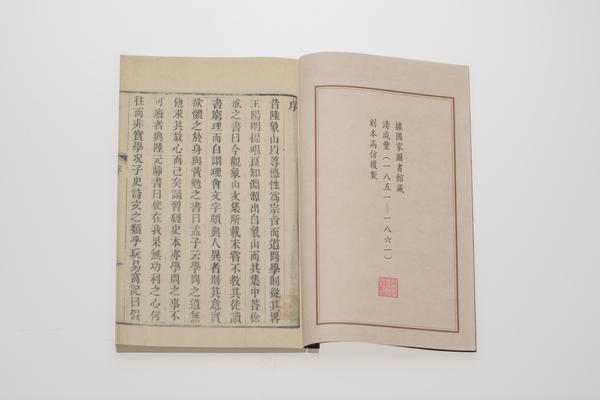 據國家圖書館藏
清咸豐（一八五一—一八六一）
刻本高仿複製
序
昔陸象山以尊德性爲宗旨而道問學則從其畧
王陽明提唱良知淵源出自象山而其集中答徐
成之書曰今觀象山文集所載未嘗不教其徒讀
書窮理而自謂理會文字頗與人異者則其意實
欲體之於身與黃勉之書曰孟子云學問之道無
他求其放心而已矣誦習經史本亦學問之事不
可廢者與陸元靜書曰使在我果無功利之心何
往而非實學况子史詩文之類乎玩易窩記曰假
序